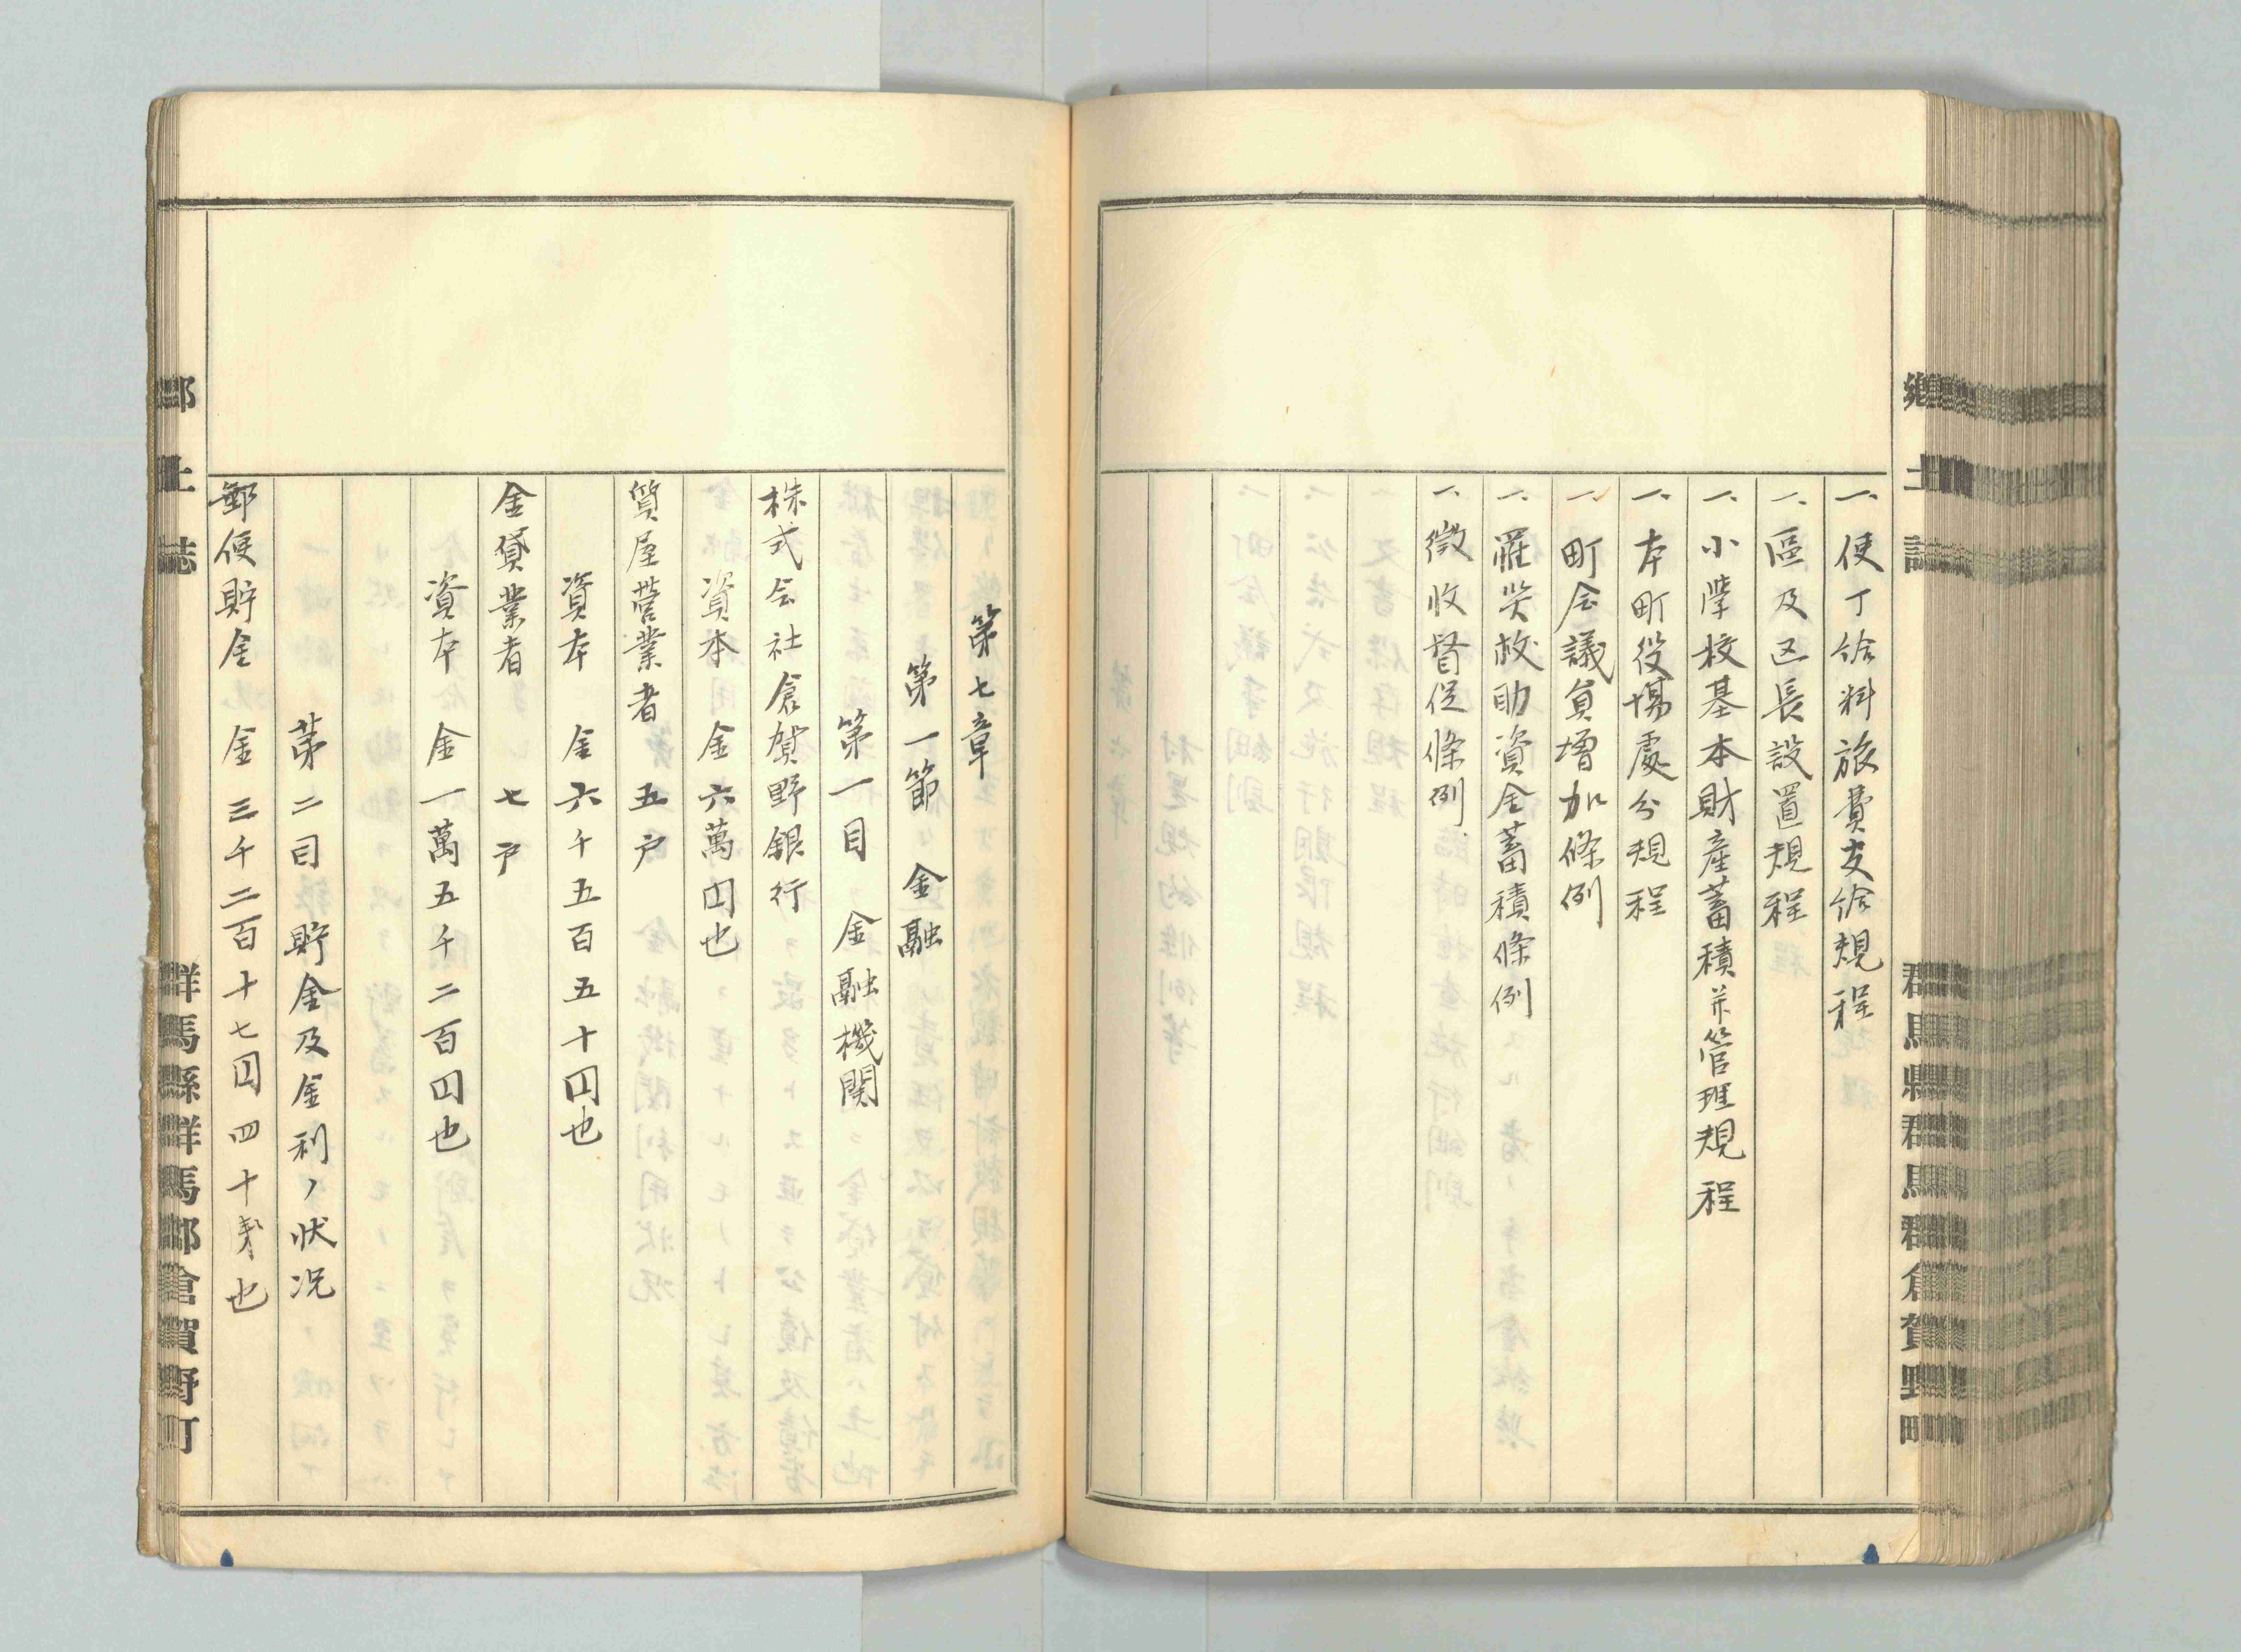 郷土誌
群馬縣群馬郡倉賀野町
一、使丁給料旅費支給規程
一、區及区長設置規程
一、小學校基本財産蓄積并管理規程
一、本町役場處分規程
一、町会議員増加條例
一、罹災救助資金蓄積條例
一、徴收督促條例
第七章
第一節　金融
第一目　金融機関
株式会社倉賀野銀行
資本　金六萬円也
質屋営業者　五戸
資本　金六千五百五十円也
金貸業者　七戸
資本　金一萬五千二百円也
第二目　貯金及金利ノ状况
郵便貯金　金三千二百十七円四十銭也
郷土誌
群馬縣群馬郡倉賀野町